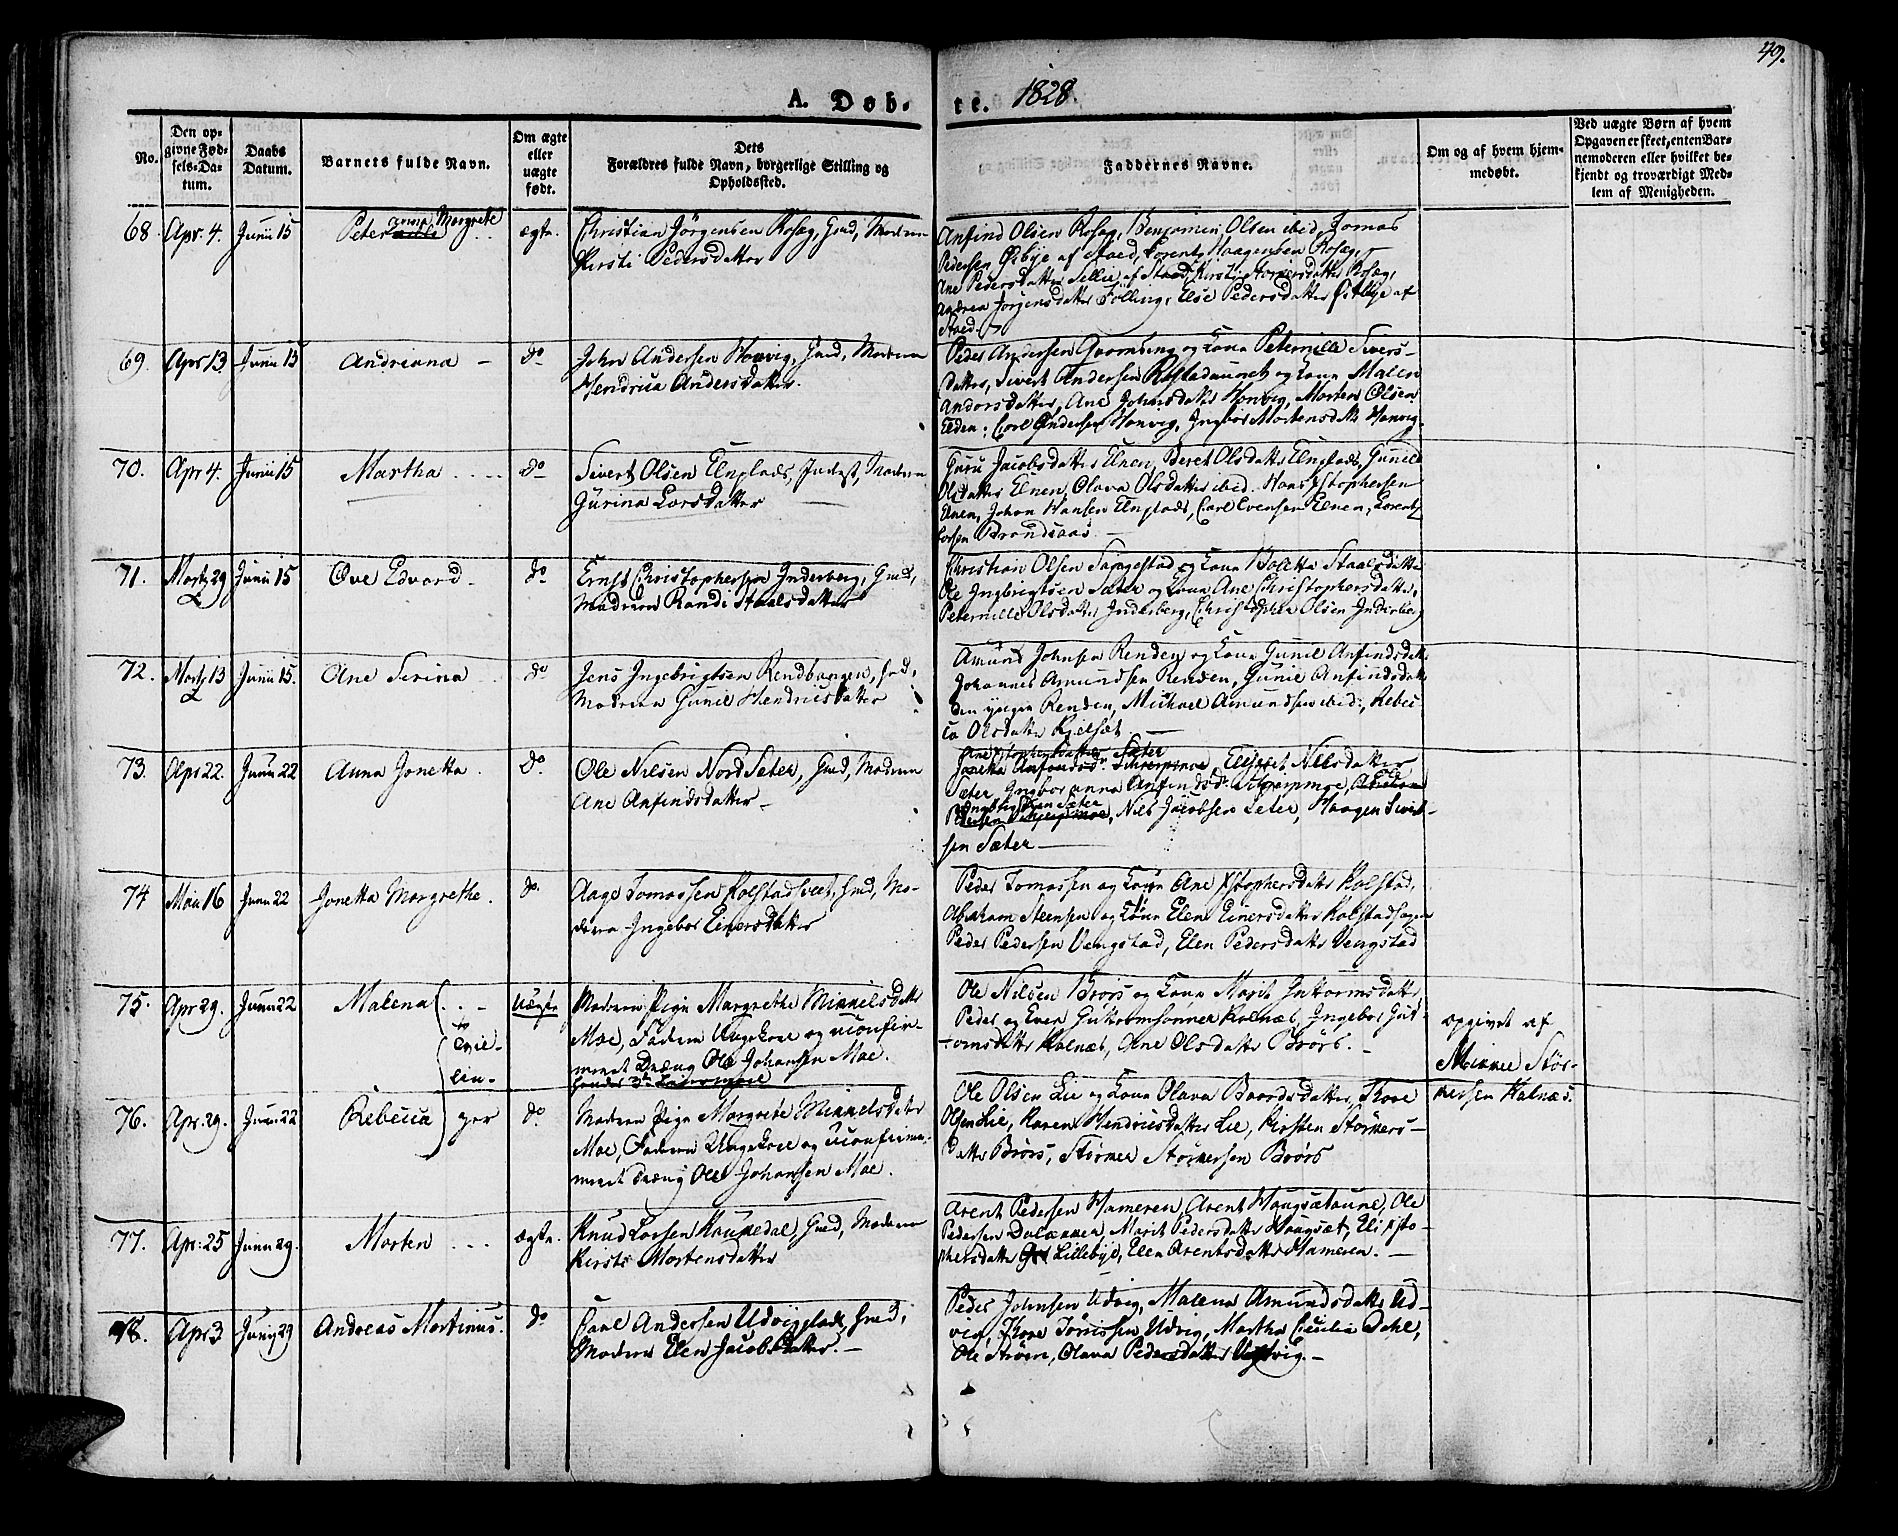 49.
A. Døb-
te. 1828.
No.
Den op-
givne Fød-
sels-Da-
tum.
Daabs
Datum.
Barnets fulde Navn.
Om ægte
eller
uægte
født.
Dets
Forældres fulde Navn, borgerlige Stilling og
Opholdssted.
Faddernes Navne.
Om og af hvem hjem-
medøbt.
Ved uægte Børn af hvem
Opgaven er skeet, enten Bar-
nemoderen eller hvilket be-
kjendt og troværdigt Med-
lem af Menigheden.
68. Apr. 4. Junii 15 Peter Anna Margrete ægte.
Christian Jörgensen Rosæg, Gmd, Moderen
Kirsti Pedersdatter
Anfind Olsen Rosæg, Benjamin Olsen ibid, Tomas
Pedersen Østbye af Stoed, Lorentz Haagensen Rosæg,
Ane Pedersdatter Sellie af Stoed, Rosæg,
Andrea Jörgensdatter Fölling, Else Pedersdatter Østbye af
Stoed.
69. Apr 13 Junii 15 Andrianna do
John Andersen Honvig, Gmd, Moderen
Hendrica Andersdatter.
Peder Andersen og Kone Peternille Sivers-
datter, Sivert Andersen og Kone Malen
Andersdatter, Ane Johnsdatter Honvig, Morten Olsen
Elden, Carl Andersen Honvig, Ingbor Mortensdatter Honvig
70. Apr 4. Junii 15 Martha do
Sivert Olsen Elnplads, Inderst, Moderen
Gurina Larsdatter
Guru Jacobsdatter Elnen, Beret Olsdatter Elnplads, Gunild
Olsdatter Elnen, Olava Olsdatter ibid. Hans Xstophersen
Elnen, Johan Hansen Elnplads, Carl Evensen Elnen, Lorentz
Larsen Brandsaas.
71. Martz 29 Junii 15 Ove Edvard do
Ernst Christophersen Inderberg, Gmd,
Moderen Randi Staalsdatter
Christian Olsen og Kone Boletta Staalsdatter
Ole Ingbrigtsen Sæter og Kone Ane Christophersdatter,
Peternille Olsdatter Inderberg, Christopher Olsen Inderberg
72. Martz 13 Junii 15. Ane Sirina do
Jens Ingebrigtsen Gmd,
Moderen Gunil Hendricsdatter
Amund Johnsen Renden og Kone Gunil Anfindsdatter
Johannes Amundsen Renden, Gunil Anfindsdatter
den yngre Renden, Michael Amundsen ibid, Rebec-
ca Olsdatter
73. Apr 22. Junii 22 Anna Jonetta do
Ole Nilsen Nord Seter, Gmd, Moderen
Ane Anfindsdatter
Ane Xstophersdatter Sæter
Nilsdatter
Sæter, Ingbor Anna Anfindsdr
Nils Jacobsen Seter, Haagen Sivert-
sen Sæter
74 Maii 16 Junii 22 Jonetta Margrethe. do
Aage Tomassen Kolstadsvedt, Gmd, Mo-
deren Ingebor Einersdatter
Peder Tomassen og Kone Ane Xstophersdatter Kolstad,
Abraham Steensen og Kone Elen Einersdatter
Peder Pedersen Vengstad, Elen Pedersdatter Vengstad
75. Apr 29. Junii 22 Malena Uægte
to
tvil-
lin-
Moderen Pige Margrethe
Moe, Faderen Ungekarl og uconfir-
meret Dræng Ole Johansen Moe.
Ole Nilsen Brørs og Kone Marit Guttormsdatter,
Peder og Even Guttormsønner Kolnæs, Ingebor Gut-
tormsdatter Kolnæs, Ane Olsdatter Brørs.
opgivet af
Stör-
76. Apr. 29. Junii 22 Rebecca ger do
Moderen Pige Margrete
Moe, Faderen Ungekarl og uconfir-
meret Dræng Ole Johansen Moe.
Ole Olsen Lie og Kone Olava Baardsdatter, Thore
Olsen Lie, Karen Hendricsdatter Lie, Kirsten Störkers-
datter Brørs, Störker Störkersen Brørs
77. Apr: 25 Junii 29. Morten ægte.
Knud Larsen Gmd, Moderen
Kirsti Mortensdatter
Arent Pedersen Hameren, Arent Haugsætaune, Ole
Pedersen Marit Pedersdatter Haugsæt, Eli Xsto-
phersdatter Lillebye, Elen Arentsdatter Hameren.
78. Apr 3 Junij 29 Andreas Martinus. do
Carl Andersen Udvigplads, Gmd,
Moderen Elen Jacobsdatter.
Peder Johnsen Udvig, Malena Amundsdatter Ud-
vig, Thore Udvig, Martha Cecilia Dahl,
Ole Ström, Olava Pedersdatter Udvig.